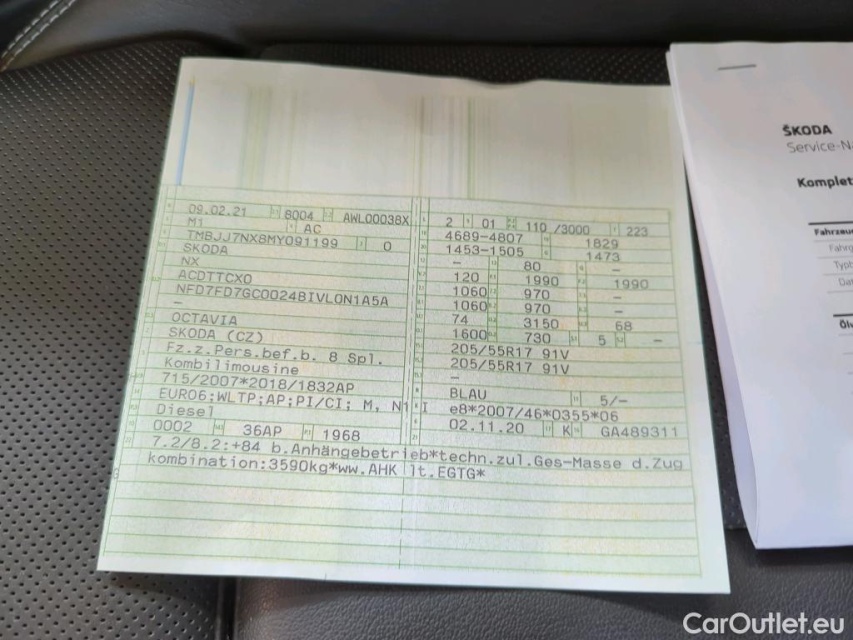 09.02.21 8004 AWL00038X
M1 AC
TMBJJ7NX8MY091199 0
SKODA
NX
ACDTTCX0
NFD7FD7GC0024BIVLON1A5A
-
OCTAVIA
SKODA (CZ)
Fz.z.Pers.bef.b. 8 Spl.
Kombilimousine
715/2007*2018/1832AP
EURO6;WLTP;AP;PI/CI; M, N1 I
Diesel
0002 36AP 1968
2 01 110 /3000 223
4689-4807 1829
1453-1505 1473
- 80 -
120 1990 1990
1060 970
1060 970
74 3150 68
1600 730 5 -
205/55R17 91V
205/55R17 91V
-
BLAU 5/-
e8*2007/46*0355*06
02.11.20 K GA489311
7.2/8.2:+84 b.Anhängebetrieb*techn.zul.Ges-Masse d.Zug
kombination:3590kg*ww.AHK lt.EGTG*
ŠKODA
Service-N
Komplet
Fahrzeu
Fahrg
Typb
Dat
CarOutlet.eu